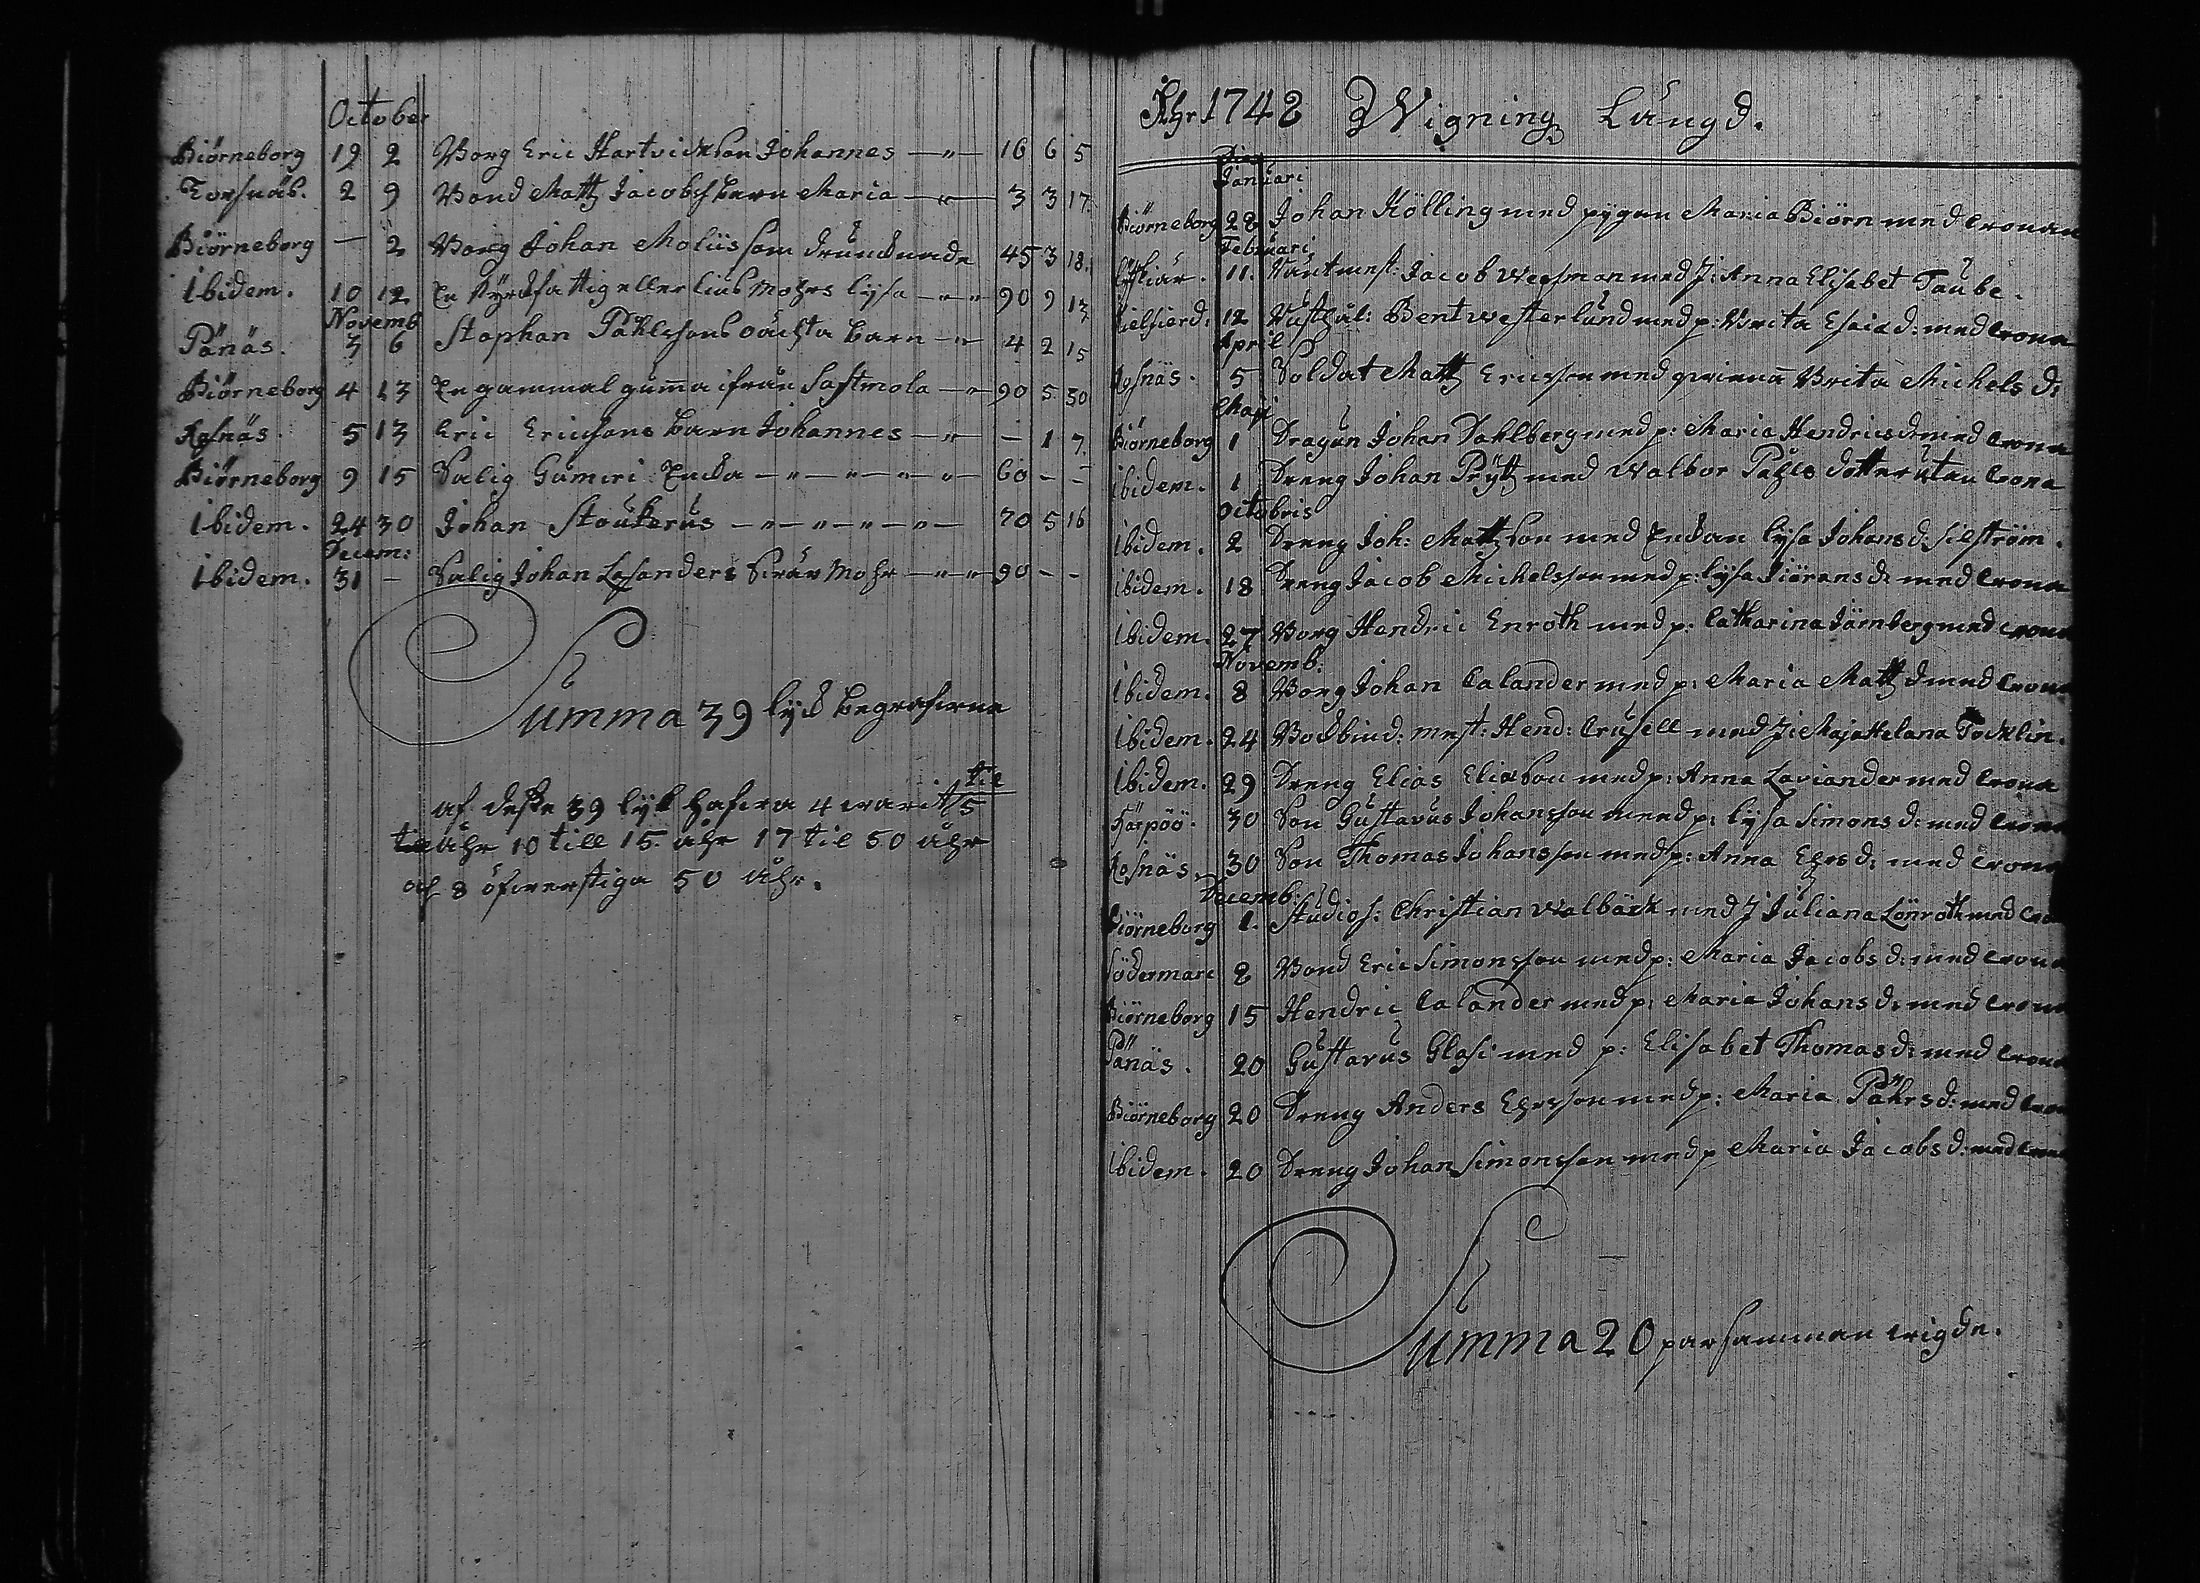 October
Biörneborg 19 2 Borg Eric Hartvickson Johannes 16 6 5
Torsnäs. 2 9 Bond Matts Jacobs barn Maria 3 3 17
Biörneborg — 2 Borg Johan Moliis som drunknade 45 3 18.
Ibidem. 10 12 En kyrckfattig eller lius Mohrs Lysa 90 9 13
Novemb
Pånäs. 3 6 Staphan Påhlssons oächta barn 4 2 15
Biörneborg 4 13 En gammal gumma ifrån Sastmola 90 5 30
Rosnäs. 5 13 Eric Ericssons barn Johannes — 1 7.
Biörneborg 9 15 Salig Gumeri Encka 60 - -
Ibidem. 24 30 Johan Stoukerus 70 5 16
Decem:
Ibidem. 31 - Salig Johan Lesanders Swär Mohr 90 - -
Summa 39 lyck begrafwne
af desse 39 lyck hafwa 4 warit til 5
åhr 10 till 15 åhr 17 til 50 åhr
och 8 öfwerstiga 50 åhr.
Åhr 1748 Wigning Längd.
Dies
Januari
Biörneborg 28 Johan Kölling med pygan Maria Biörn med Cronan
Februari
11. Jacob Wessman med J: Anna Elisabet Taube.
12 Bent Westerlund med p: Brita Esaiæ d: med Crona
April
Rosnäs. 5 Soldat Matts Ericsson med qwinna Brita Michels d:
Maji
Biörneborg 1 Dragun Johan Dahlberg med p: Maria Hendrics d: med Crona
Ibidem. 1 Dreng Johan Prytz med Walbor Påhls dotter utan Crona
Octobris
Ibidem. 2 Dreng Joh: Mattsson med Enckan Lysa Johans d: Silström.
Ibidem. 18 Dreng Jacob Michelsson med p: Lysa Jörans d: med Crona
Ibidem. 27 Borg Hendric Enroth med p: Catharina Järnberg med Crona
Novemb:
Ibidem. 8 Borg Johan Calander med p: Maria Matts d med Crona
Ibidem. 24 Bockbind: mest: Hend: Crusell med J: Maja Helena Tocklin.
Ibidem. 29 Dreng Elias Eliæson med p: Anna Laviander med Crona
Härpöö. 30 Son Gustavus Johansson med p: Lysa Simons d: med Crona
Rosnäs. 30 Son Thomas Johansson med p: Anna Ehrs d: med Crona
Decemb:
Biörneborg 1. Studios: Christian Walbäck med J Juliana Lönroth med Cron
Södermarc 8 Bond Eric Simonsson med p: Maria Jacobs d: med Crona
Biörneborg 15 Hendric Calander med p: Maria Johans d: med Crona
Pånäs. 20 Gustavus Glasi med p: Elisabet Thomas d: med Crona
Biörneborg 20 Dreng Anders Ehrsson med p: Maria Påhrs d: med Cron
Ibidem. 20 Dreng Johan Simonsson med p Maria Jacobs d: med Crona
Summa 20 par samman wigde.